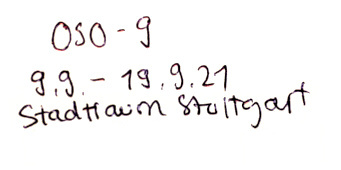 OSO - 9
9.9. - 19.9.21
Stadtraum Stuttgart